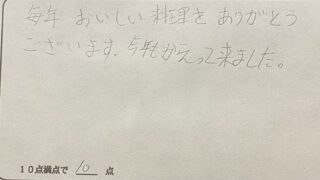 毎年 おいしい料理を ありがとう
ございます。今年もかえって来ました。
10点満点で 10 点